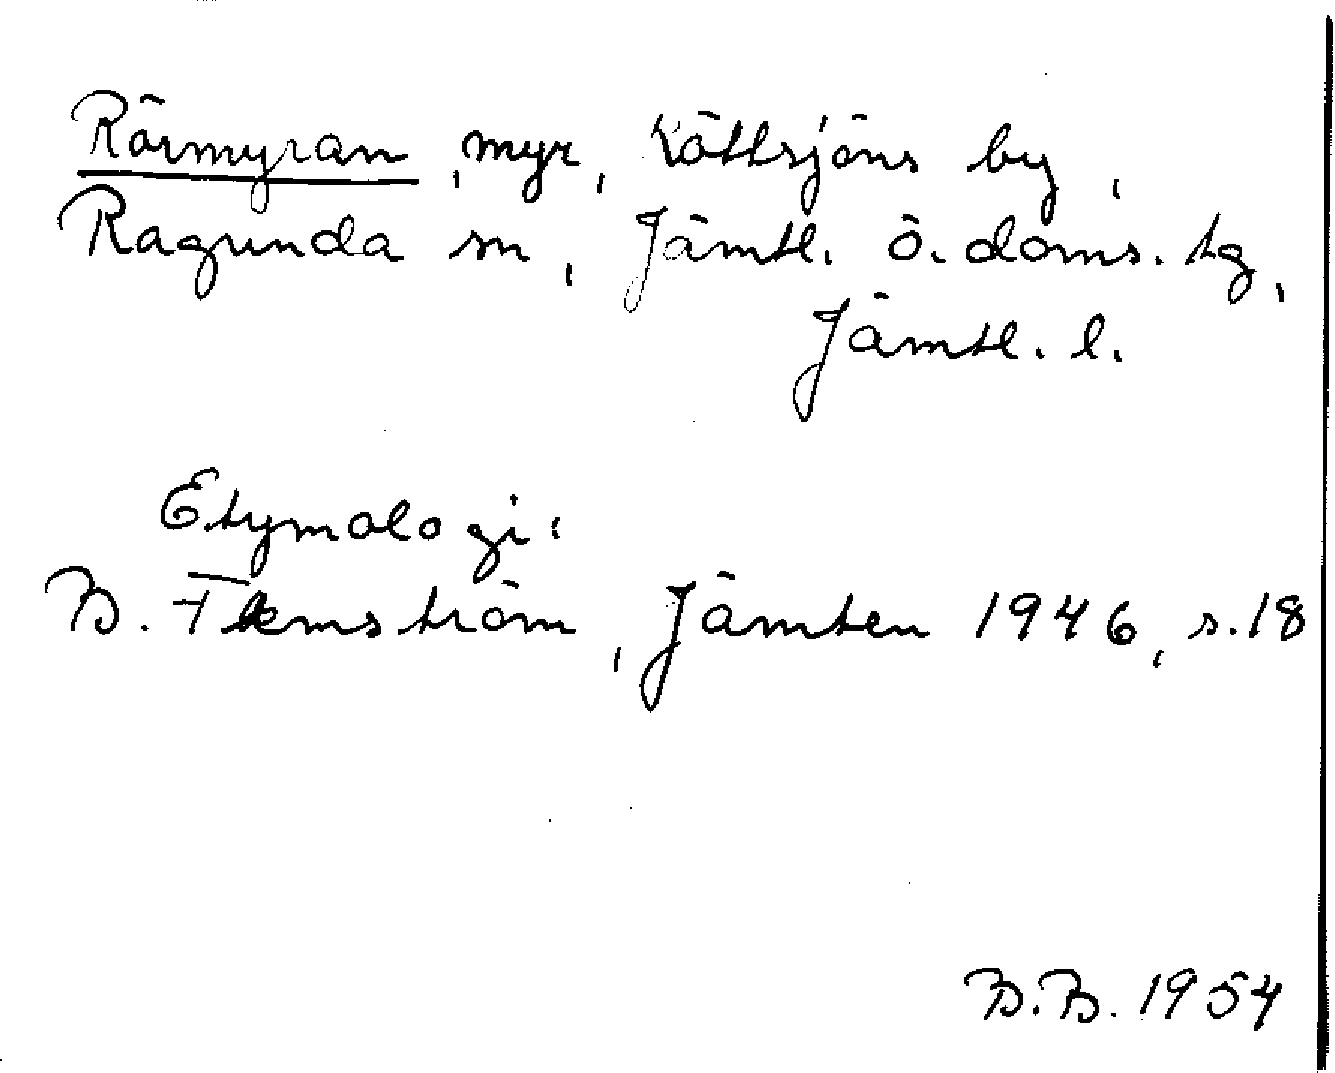 Rörmyran, myr, Köttsjöns by,
Ragunda sn, Jämtl. ö. doms. tg,
Jämtl. l.
Etymologi:
B. Flemström, Jämten 1946, s. 18
B.B. 1954